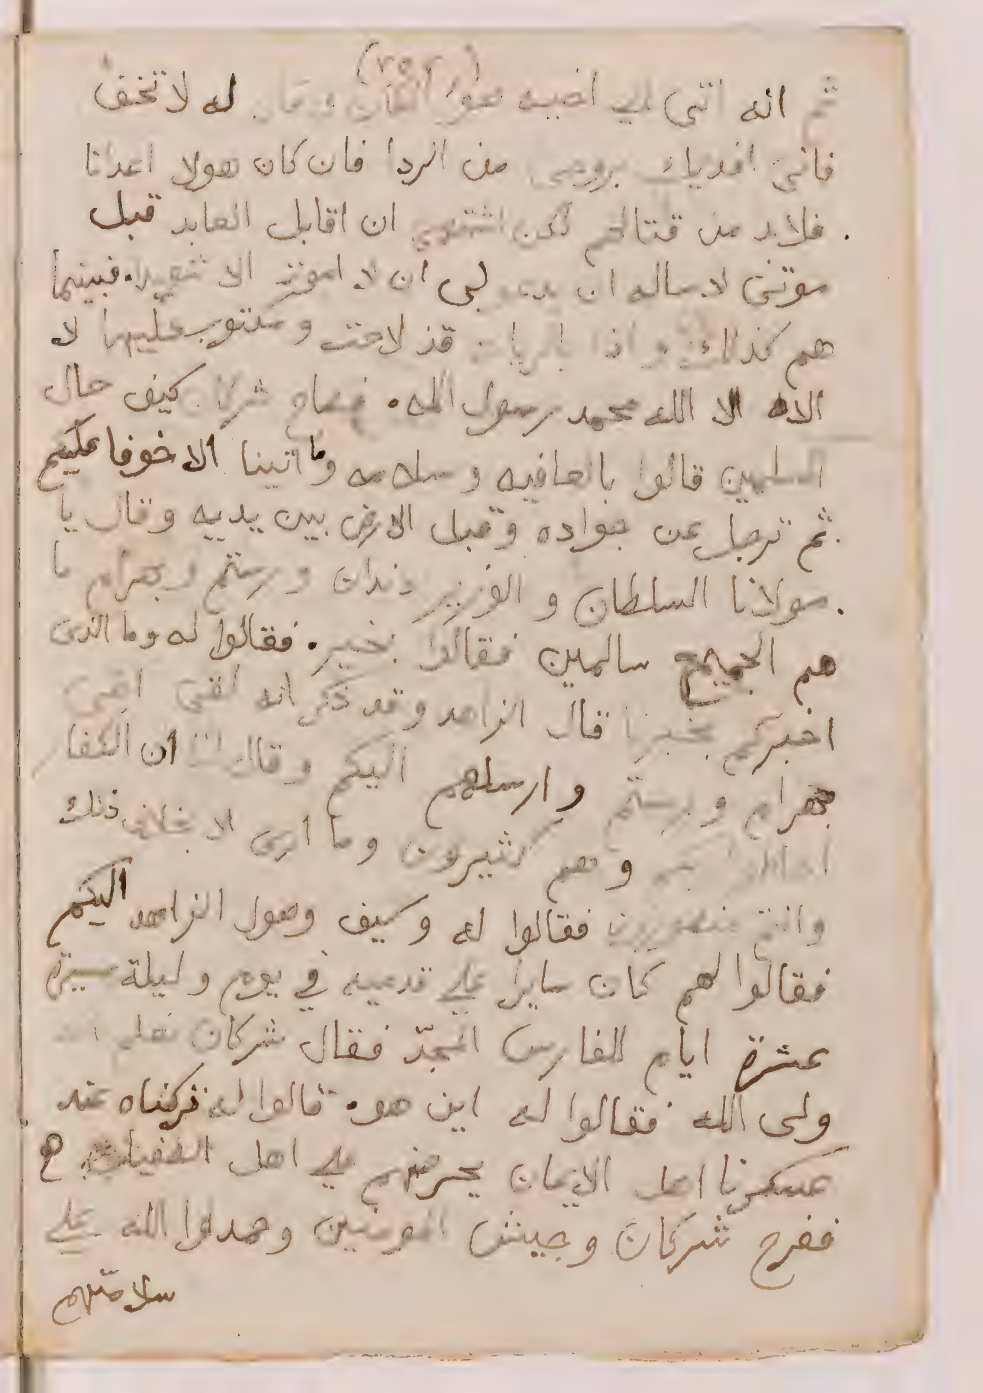 (٢٥٢)
ثم انه اتى الي اخيه ضوء المكان وقال له لا تخف
فانى افديك بروحى من الردا فان كان هولا اعدانا
فلابد من قتالهم لكن اشتهى ان اقابل العابد قبل
موتى لاساله ان يدعو لى ان لا اموت الا شهيدا. فبينما
هم كذلك و اذا بالريات قد لاحت ومكتوب عليها لا
الاه الا الله محمد رسول الله. فصاح شركان كيف حال
المسلمين قالوا بالعافيه وسلامه وما اتينا الا خوفا عليكم
ثم ترجل عن جواده وقبل الارض بين يديه وقال يا
مولانا السلطان و الوزير دندان ورستم وبهرام ما
هم الجميع سالمين فقالوا بخير. فقالوا له وما الذى
اخبركم بخبرنا قال الزاهد وقد ذكر انه لقى اخى
بهرام ورستم وارسلهم اليكم وقال لنا ان الكفار
وهم كثيرون وما ارى الا بخلاف ذلك
وانتم منصورون فقالوا له وكيف وصول الزاهد اليكم
فقالوا لهم كان سايرا على قدميه في يوم وليلة مسيرة
عشرة ايام للفارس المجدّ فقال شركان
ولى الله فقالوا له اين هو. قالوا له تركناه عند
عسكرنا اهل الايمان يحرضهم على اهل الطغيان.
ففرح شركان وجيش المومنين وحمدوا الله على
سلامتهم